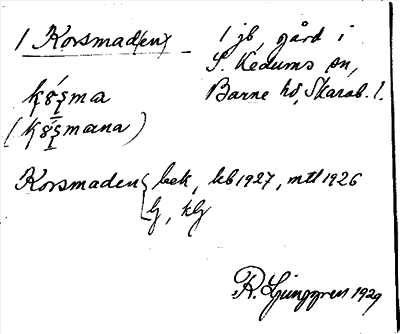 1 Korsmad(en)
1 jb, gård i
S. Kedums sn,
Barne hd, Skarab. l.
Korsmaden { bek, kb 1927, mtl 1926
lj, klj
R. Ljunggren 1929